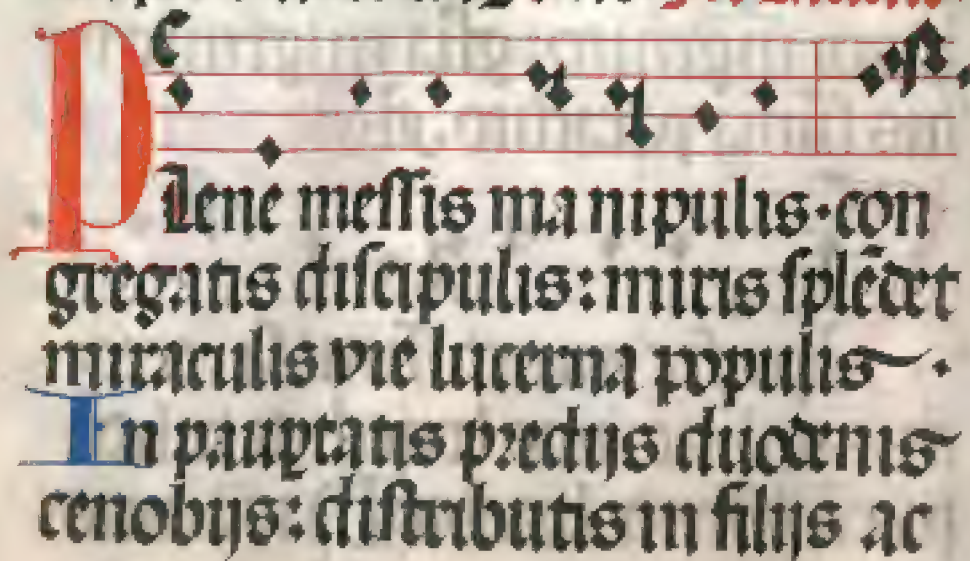 Plene messis manipulis·con
gregatis discipulis: miris splēdet
miraculis vie lucerna populis.
In pauptatis predijs duodenis
cenobijs: distributis in filijs ac